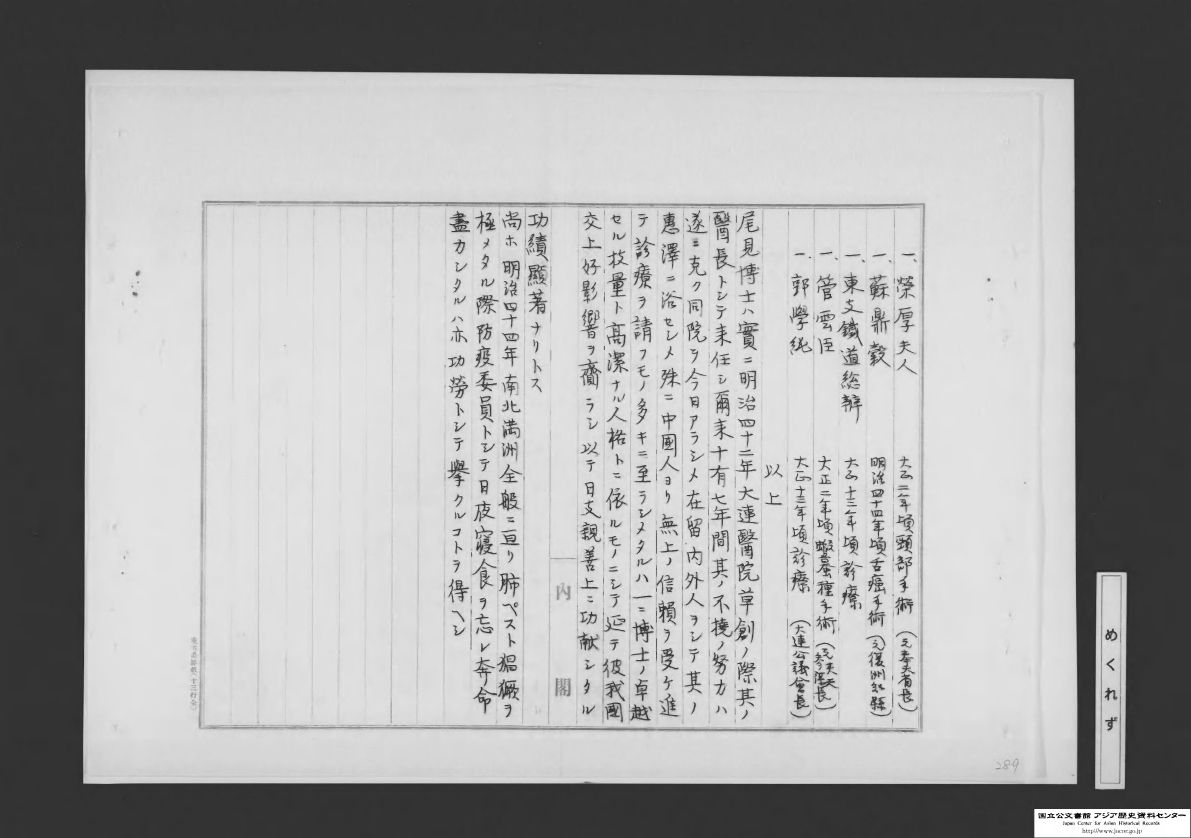 一、榮厚夫人 大正二年頃頸部手術 (元奉天省長)
一、蘇鼎毅 明治四十四年頃舌癌手術 (元復洲知縣)
一、東支鐵道総辦 大正十三年頃診療
一、管雲臣 大正二年頃蝦蟇種手術
一、郭學純 大正十三年頃診療 (大連公議會長)
以上
尾見博士ハ實ニ明治四十二年大連醫院草創ノ際其ノ
醫長トシテ来任シ爾来十有七年間其ノ不撓ノ努力ハ
遂ニ克ク同院ヲ今日アラシメ在留内外人ヲシテ其ノ
惠澤ニ浴セシメ殊ニ中國人ヨリ無上ノ信賴ヲ受ケ進
テ診療ヲ請フモノ多キニ至ラシメタルハ一ニ博士ノ卓越
セル技量ト高潔ナル人格トニ依ルモノニシテ延テ彼我國
交上好影響ヲ齎ラシ以テ日支親善上ニ功献シタル
功績顯著ナリトス
尚ホ明治四十四年南北満洲全般ニ亘リ肺ペスト猖獗ヲ
極メタル際防疫委員トシテ日夜寝食ヲ忘レ奔命
盡力シタルハ亦功勞トシテ擧クルコトヲ得ヘシ
内閣
289
めくれず
国立公文書館 アジア歴史資料センター
Japan Center for Asian Historical Records
http://www.jacar.go.jp